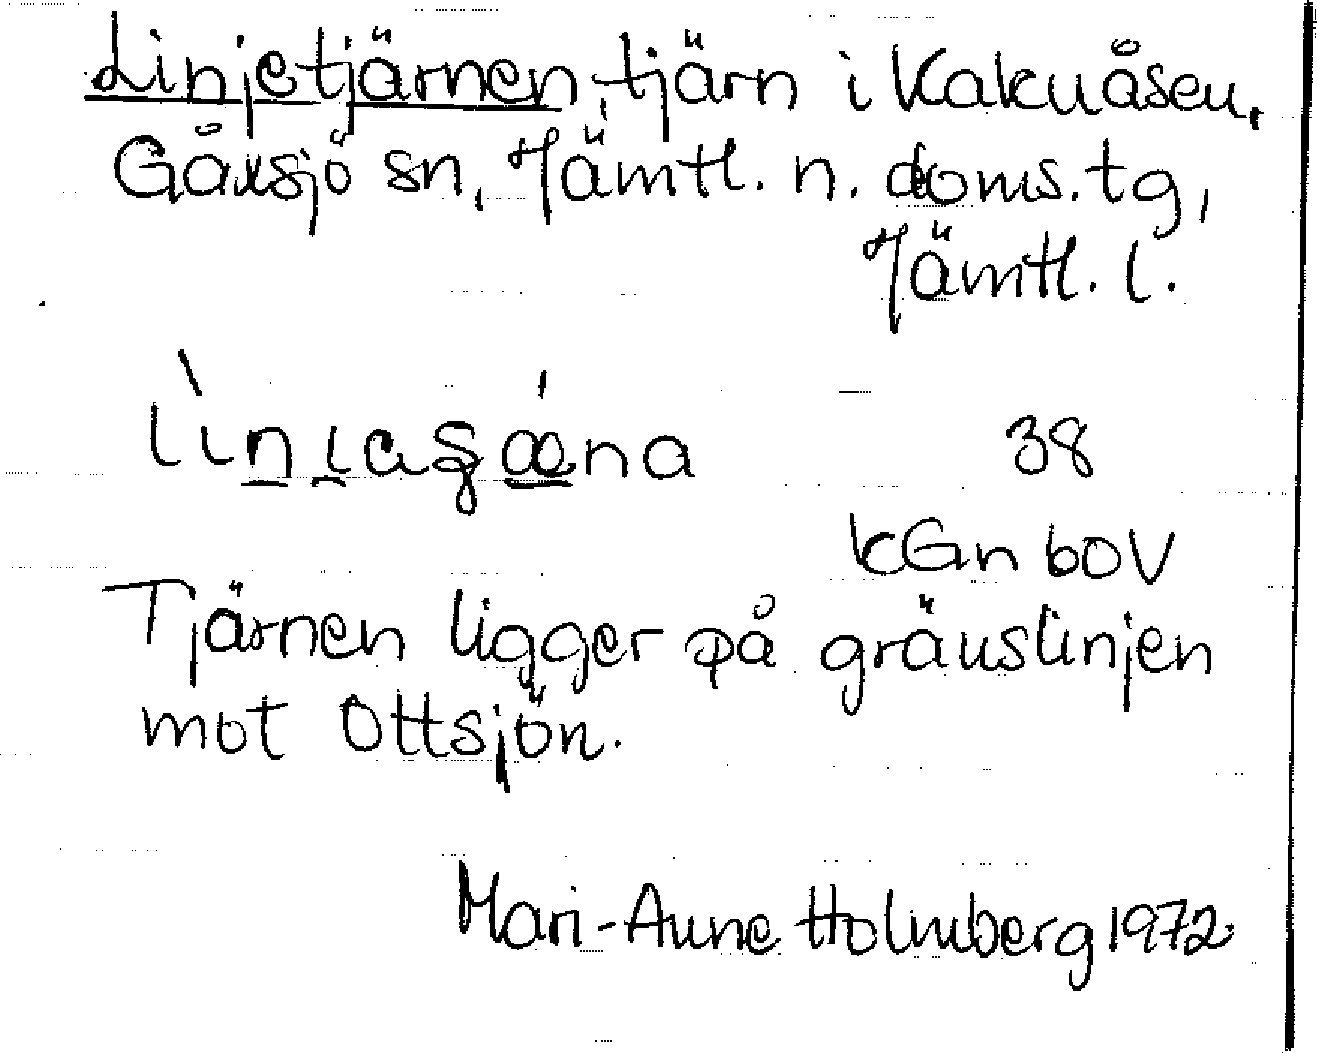 Linjetjärnen, tjärn i Kakuåsen,
Gåxsjö sn, Jämtl. n. doms. tg,
Jämtl. l.
38
kGn 60 V
Tjärnen ligger på gränslinjen
mot Ottsjön.
Mari-Anne Holmberg 1972